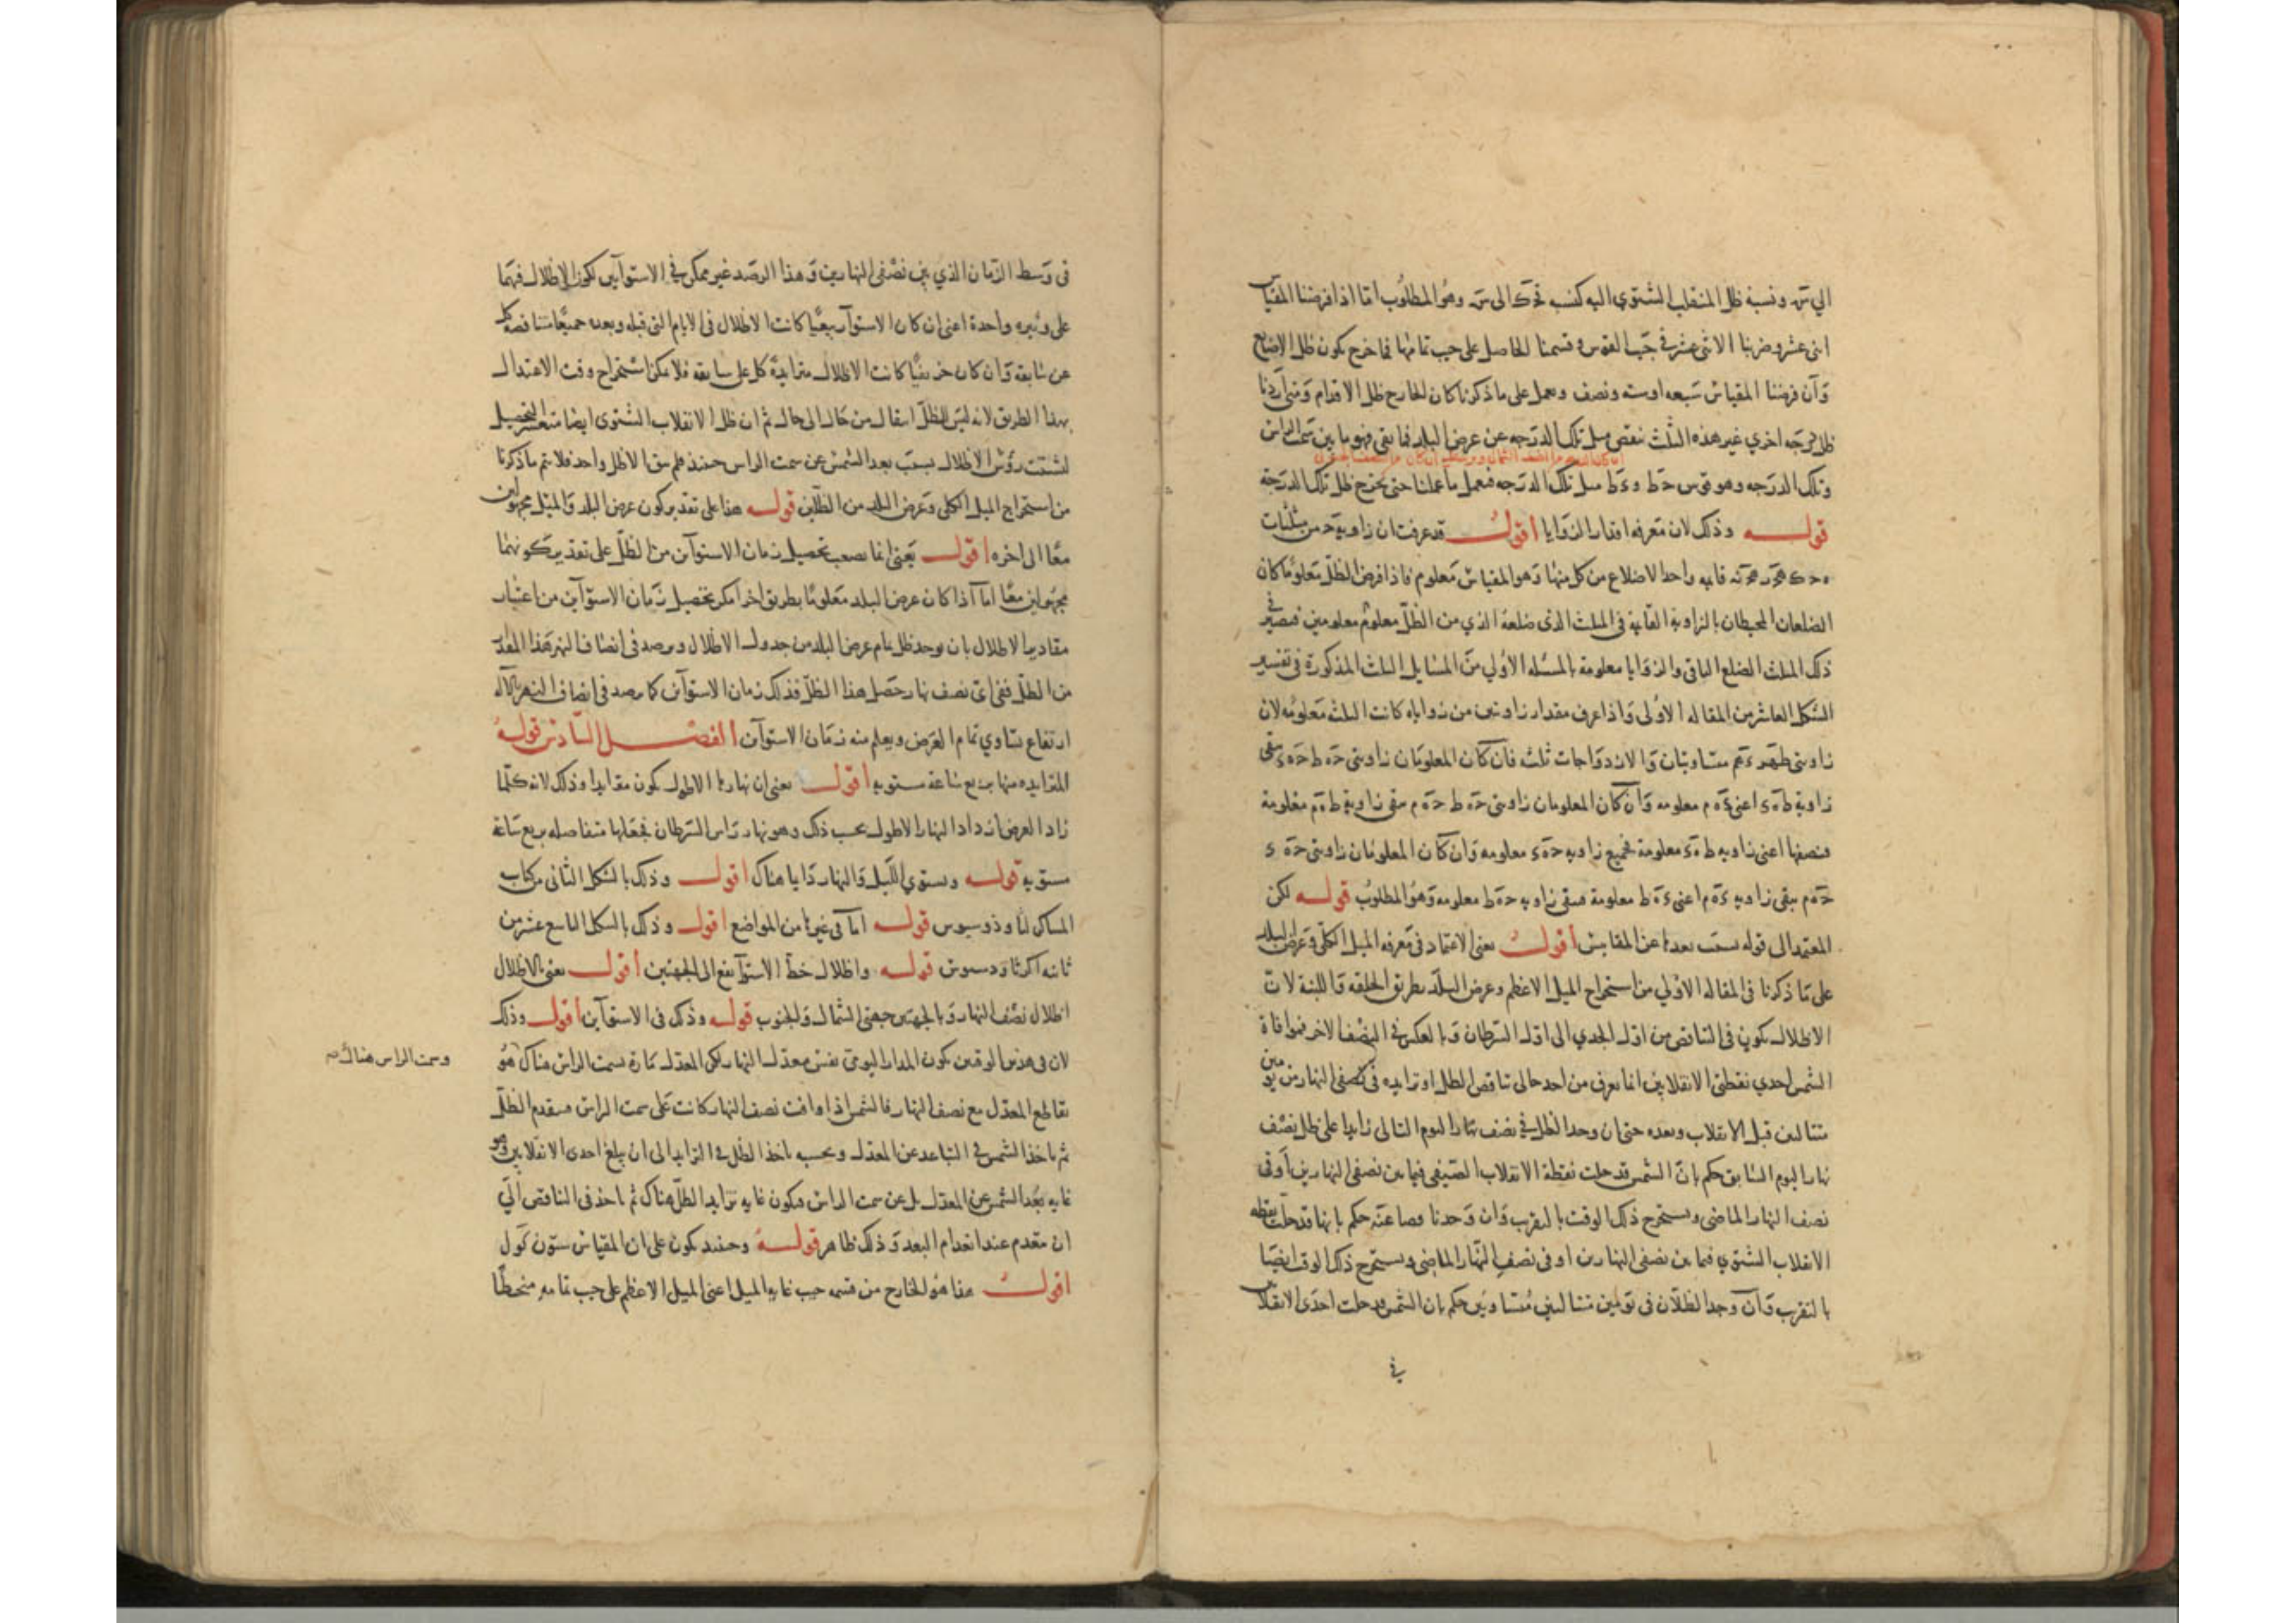 الي ته ونسبة ظل المنقلب الشتوي اليه كنسبه الى وهو المطلوب اما اذا فرضنا المقياس
اثنى عشر وضربنا الاثنى عشر في جيب القوس وقسمنا الحاصل على جيب تمامها فما خرج يكون ظل الاصابع
وان فرضنا المقياس سبعه او سته ونصف ونعمل على ما ذكرنا كان الخارج ظل الاقدام ومتى اردنا
ظل درجه اخري غير هذه الثلث ننقص ميل تلك الدرجه عن عرض البلد فما بقى فهو ما بين سمت الراس
وتلك الدرجه وهو قوس ميل تلك الدرجه فنعمل ما عملنا حتى يخرج ظل تلك الدرجة
قوله وذلك لان معرفه اقدار الزوايا اقول قد عرفت ان زاوية من مثلثات
قايمه واحد الاضلاع من كل منها وهو المقياس معلوم فاذا فرض الظل معلوما كان
الضلعان المحيطان بالزاوية القايمة في المثلث الذى ضلعه الذي من الظل معلوم معلومين فيصير في
ذلك المثلث الضلع الباقى والزوايا معلومة بالمسئله الاولي من المسايل الثلث المذكورة في تفسير
الشكل العاشر من المقاله الاولى واذا عرف مقدار زاوتين من زواياه كانت الثلث معلومه لان
زاويتى متساويتان والازدواجات ثلثه فان كان المعلومتان زاويتى يبقى
زاوية اعنى معلومه وان كان المعلومان زاويتى يبقى زاوية معلومة
فنصفها اعنى زاويه معلومة فجميع زاويه معلومه وان كان المعلومتان زاويتى
يبقى زاويه اعنى معلومة فيبقى زاويه معلومه وهو المطلوب قوله لكن
المعتمد الى قوله بسبب بعدها عن المقابس اقول يعنى الاعتماد في معرفه الميل الكلى وعرض البلد
على ما ذكرنا في المقاله الاولي من استخراج الميل الاعظم وعرض البلد بطريق الحلقه واللبنة لان
الاظلال تكون في التناقص من اول الجدي الى اول السرطان وبالعكس في النصف الاخر فموافاة
الشمس احدي نقطتى الانقلابين انما يعرف من احد حالى تناقص الظل او تزايده في نصفى النهار من يومين
متتالين قبل الانقلاب وبعده حتى ان وجد الظل في نصف نهار اليوم التالى زايدا على ظل نصف
نهار اليوم السابق حكم بان الشمس قد حلت نقطة الانقلاب الصيفى فيما بين نصفى النهارين او في
نصف النهار الماضى ويستخرج ذلك الوقت بالتقرب وان وجدنا قصا عنه حكم بانها قد حلت نقطه
الانقلاب الشتوي فيما بين نصفى النهارين او في نصف النهار الماضى ويستخرج ذلك الوقت ايضا
بالتقرب وان وجد الظلان في يومين متتاليين متساويين حكم بان الشمس قد حلت احدى الانقلا
في
فى وسط الزمان الذي بين نصفى النهارين وهذا الرصد غير ممكن في الاستوآين لكون الاظلال فيهما
على وتيره واحدة اعنى ان كان الاستوآء ربيعيا كانت الاظلال في الايام التى قبله وبعده جميعا متناقصه كل
عن سابقه وان كان خريفيا كانت الاظلال متزايدة كل على سابقه فلا يمكن استخراج وقت الاعتدال
بهذا الطريق لانه ليس للظل انتقال من حال الى حال ثم ان ظل الانقلاب الشتوى ايضا متعسر التحصيل
لتشتت رؤس الاظلال بسبب بعد الشمس عن سمت الراس حينئذ فلم يبق الا ظل واحد فلا يتم ما ذكرنا
من استخراج الميل الكلى وعرض البلد من الظلين قوله هذا على تقدير كون عرض البلد والميل مجهولين
معا الى اخره اقول يعنى انما يصعب تحصيل زمان الاستوآين من الظل على تقدير كونهما
مجهولين معا اما اذا كان عرض البلد معلوما بطريق اخر امكن تحصيل زمان الاستوآين من اعتبار
مقادير الاظلال بان يوجد ظل تمام عرض البلد من جدول الاظلال ويرصد في انصاف النهر هذا المقدار
من الظل ففى اى نصف نهار حصل هذا الظل فذلك زمان الاستوآين كما يرصد في انصاف النهر بالآلة
ارتفاع يساوي تمام العرض ويعلم منه زمان الاستوآين الفصل السادس قوله
المتزايده منها بربع ساعة مستويه اقول يعنى ان نهارها الاطول يكون متزايدا وذلك لانه كلما
زاد العرض ازداد النهار الاطول بحسب ذلك وهو نهار راس السرطان فجعلها متفاصله بربع ساعة
مستويه قوله ويستوي الليل والنهار دايما هناك اقول وذلك بالشكل الثانى من كتاب
المساكن لثاوذوسيوس قوله اما في غيرها من المواضع اقول وذلك بالشكل التاسع عشر من
ثانيه اكر ثاودسيوس قوله واظلال خط الاستوآ تقع الى الجهتين اقول يعنى بالاظلال
اظلال نصف النهار وبالجهتين جهتى الشمال والجنوب قوله وذلك في الاستوآين اقول وذلك
لان في هذين الوقتين يكون المدار اليومى نفس معدل النهار لكن المعدل مارة بسمت الراس هناك هو
وسمت الراس هناك صح
تقاطع المعدل مع نصف النهار فالشمس اذا وافت نصف النهار كانت على سمت الراس فينعدم الظل
ثم ياخذ الشمس في التباعد عن المعدل وبحسبه ياخذ الظل في التزايد الى ان يبلغ احدى الانقلابين وهو
غايه بعد الشمس عن المعدل بل عن سمت الراس فيكون غايه تزايد الظل هناك ثم ياخذ في التناقص الى
ان ينعدم عند انعدام البعد وذلك ظاهر قوله وحينئذ يكون على ان المقياس ستون
اقول هذا هو الخارج من قسمه جيب غايه الميل اعنى الميل الاعظم على جيب تمامه منحطا